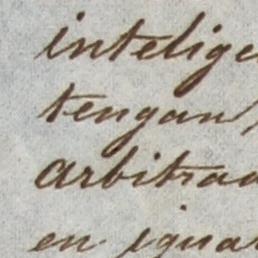 intelige
tengan
arbitrad
en igual